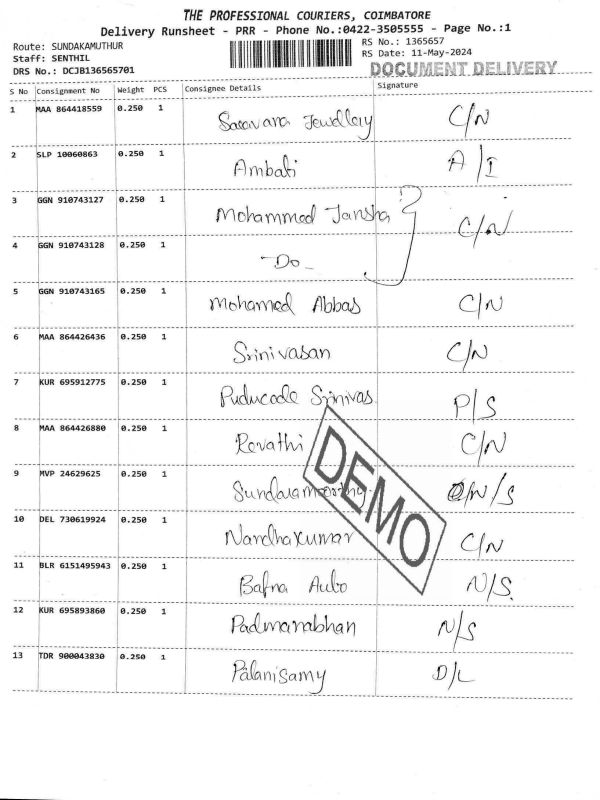 THE PROFESSIONAL COURIERS, COIMBATORE
Delivery Runsheet - PRR - Phone No.:0422-3505555 - Page No.:1
Route: SUNDAKAMUTHUR
Staff: SENTHIL
DRS No.: DCJB136565701
RS No.: 1365657
RS Date: 11-May-2024
DOCUMENT DELIVERY
S No Consignment No Weight PCS Consignee Details Signature
1 MAA 864418559 0.250 1 Saravara Jewellery C/N
2 SLP 10060863 0.250 1 Ambati A/I
3 GGN 910743127 0.250 1 Mohammed Jansha C/N
4 GGN 910743128 0.250 1 -Do-
5 GGN 910743165 0.250 1 Mohamed Abbas C/N
6 MAA 864426436 0.250 1 Srinivasan C/N
7 KUR 695912775 0.250 1 Puducode Srinivas P/S
8 MAA 864426880 0.250 1 Revathi C/N
9 MVP 24629625 0.250 1 Sundaramoorthy N/S
10 DEL 730619924 0.250 1 Nandhakumar C/N
11 BLR 6151495943 0.250 1 Bafna Auto N/S.
12 KUR 695893860 0.250 1 Padmanabhan N/S
13 TDR 900043830 0.250 1 Palanisamy D/L
DEMO